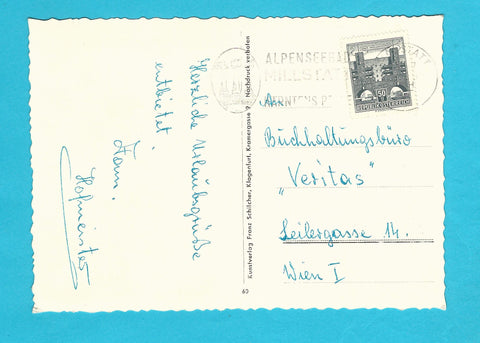 Herzliche Urlaubsgrüße
entbietet
Fam.
Hofmeister
Kunstverlag Franz Schilcher, Klagenfurt, Kramergasse 9 Nachdruck verboten
60
ALPENSEEBAD
MILLSTATT
KÄRNTENS
50
REPUBLIK ÖSTERREICH
An
Buchhaltungsbüro
„Veritas"
Seilergasse 14.
Wien I